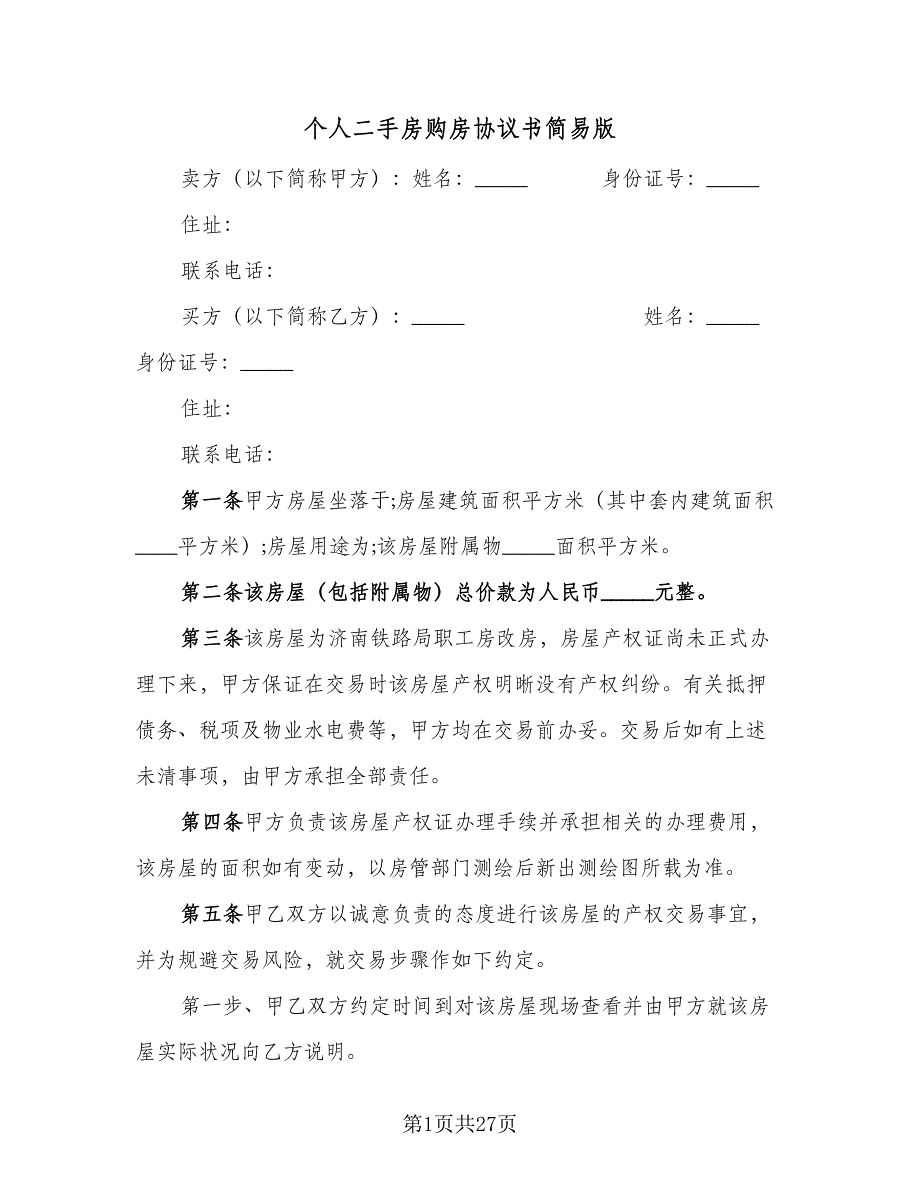 个人二手房购房协议书简易版
卖方（以下简称甲方）：姓名：_____ 身份证号：_____
住址：
联系电话：
买方（以下简称乙方）：_____ 姓名：_____
身份证号：_____
住址：
联系电话：
第一条甲方房屋坐落于;房屋建筑面积平方米（其中套内建筑面积
____平方米）;房屋用途为;该房屋附属物_____面积平方米。
第二条该房屋（包括附属物）总价款为人民币_____元整。
第三条该房屋为济南铁路局职工房改房，房屋产权证尚未正式办
理下来，甲方保证在交易时该房屋产权明晰没有产权纠纷。有关抵押
债务、税项及物业水电费等，甲方均在交易前办妥。交易后如有上述
未清事项，由甲方承担全部责任。
第四条甲方负责该房屋产权证办理手续并承担相关的办理费用，
该房屋的面积如有变动，以房管部门测绘后新出测绘图所载为准。
第五条甲乙双方以诚意负责的态度进行该房屋的产权交易事宜，
并为规避交易风险，就交易步骤作如下约定。
第一步、甲乙双方约定时间到对该房屋现场查看并由甲方就该房
屋实际状况向乙方说明。
第1页共27页